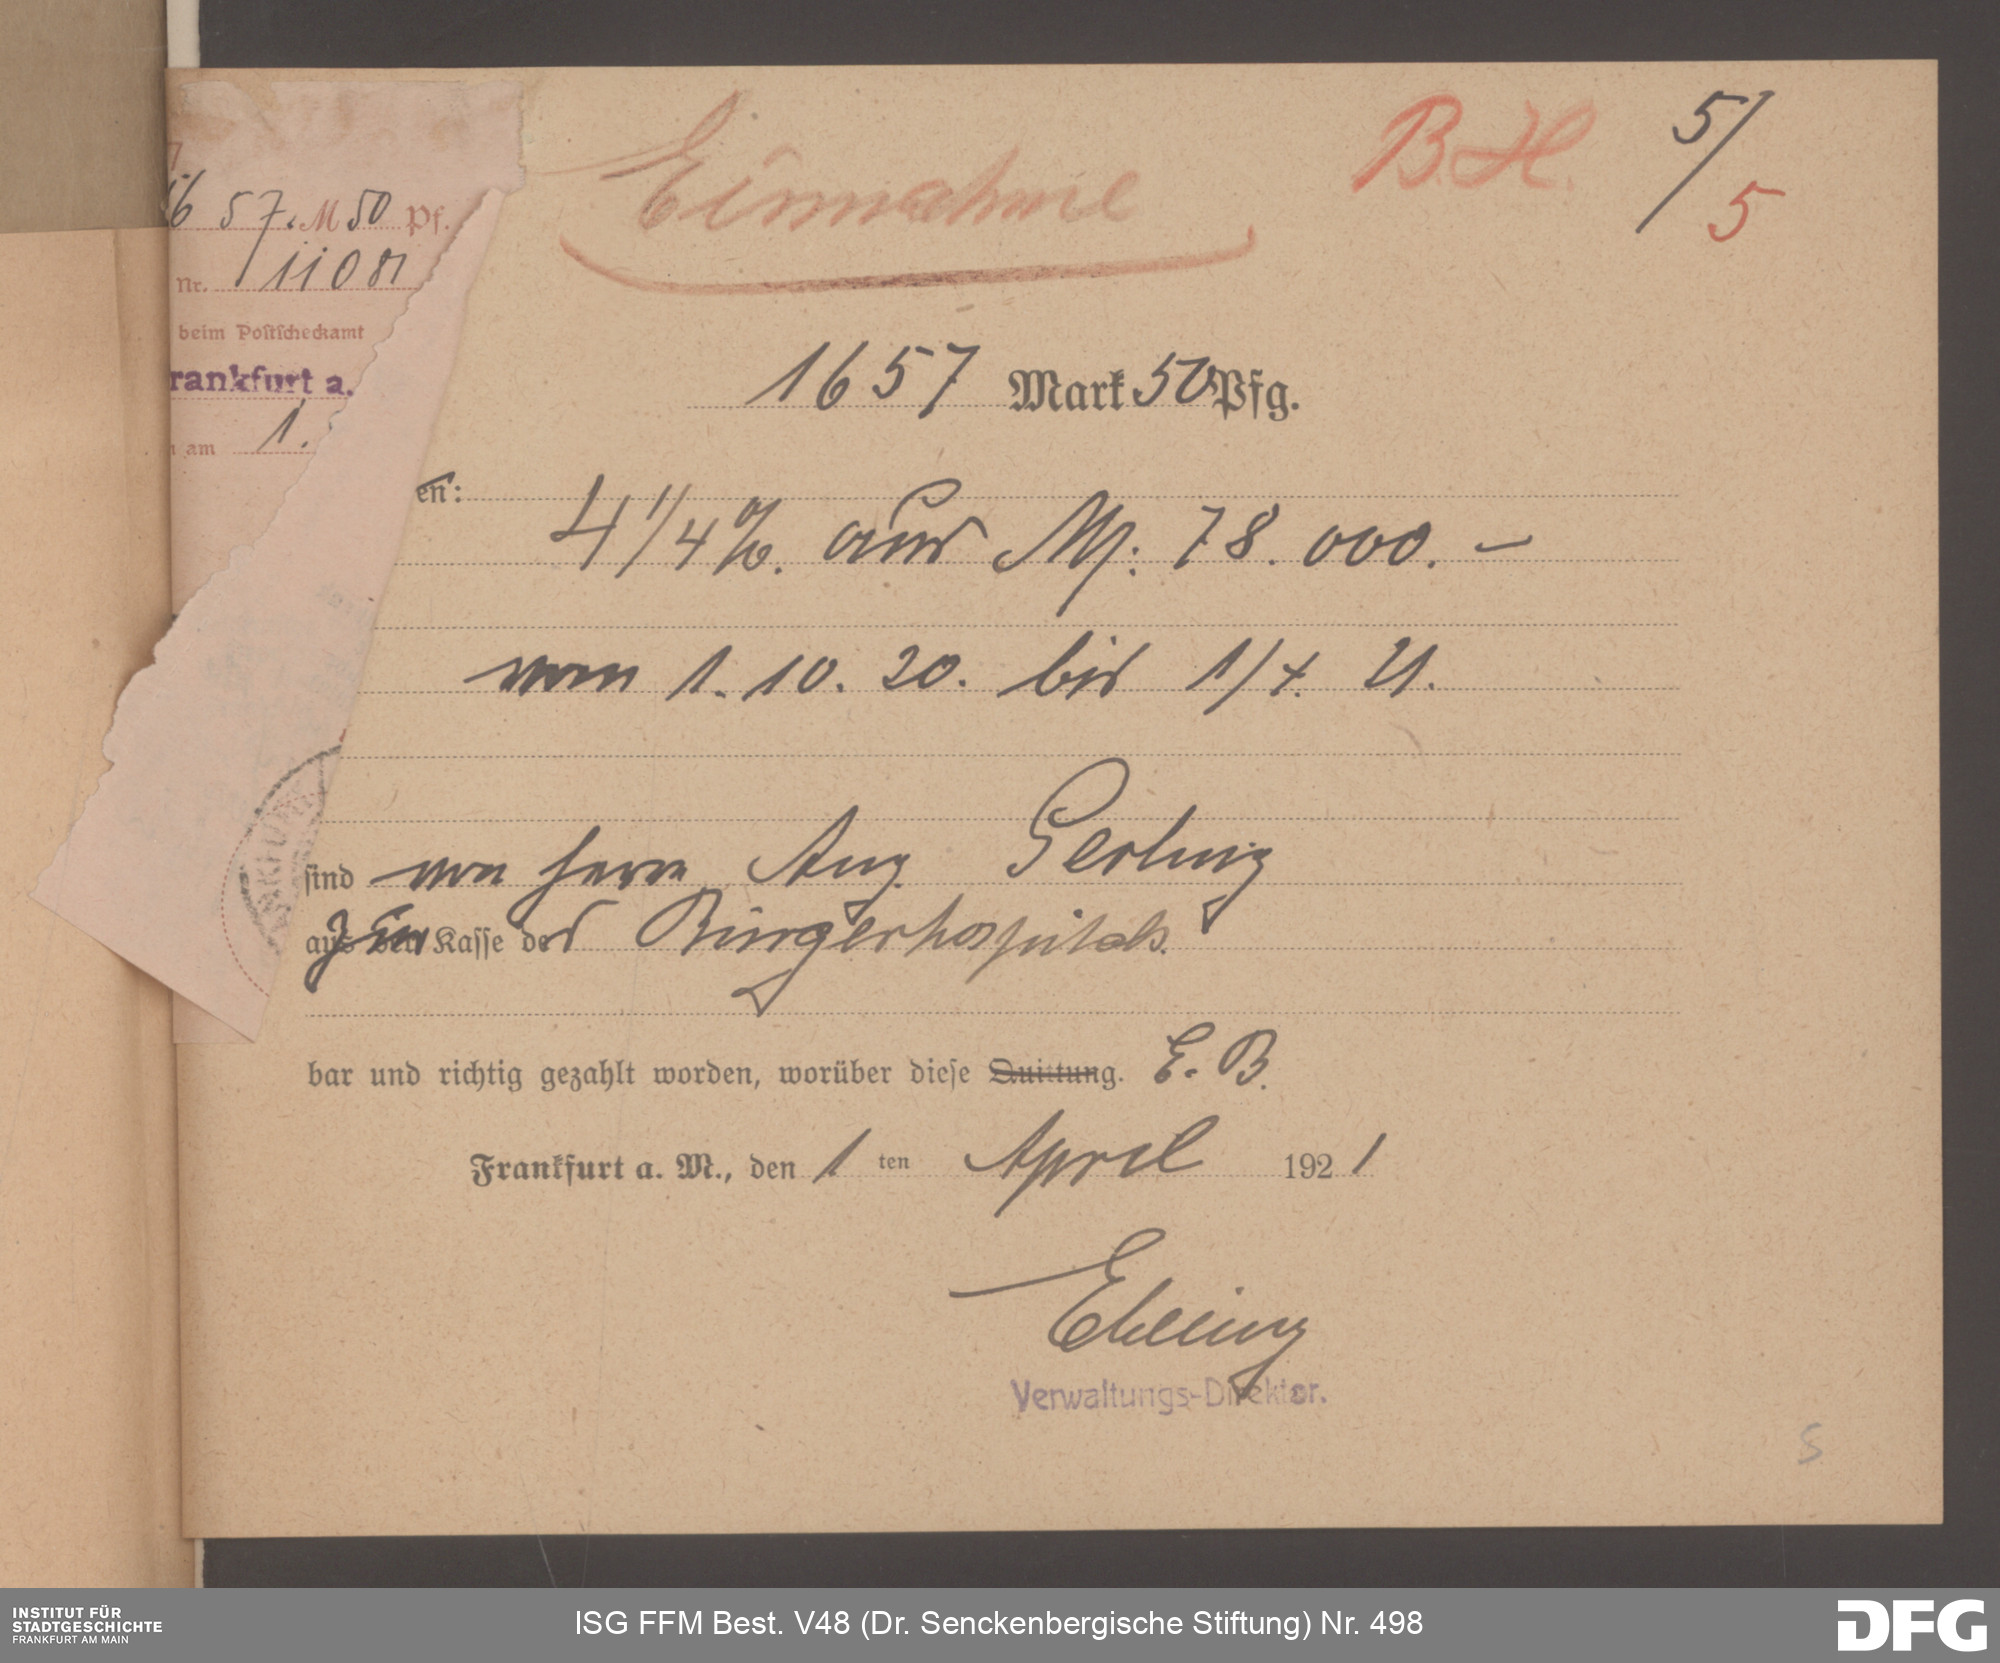 Einnahme
B. H.
5/5
16 57. M 50 Pf.
Nr. 11081
beim Postscheckamt
rankfurt a.
am 1.
1657 Mark 50 Pfg.
en:
4 1/4 %. aus M: 78.000.-
vom 1. 10. 20. bis 1/4. 21.
sind von Herrn Aug. Gerling
zur Kasse des Bürgerhospitals.
bar und richtig gezahlt worden, worüber diese Quittung. E. B.
Frankfurt a. M., den 1 ten April 1921
Ebeling
Verwaltungs-Direktor.
5
INSTITUT FÜR
STADTGESCHICHTE
FRANKFURT AM MAIN
ISG FFM Best. V48 (Dr. Senckenbergische Stiftung) Nr. 498
DFG